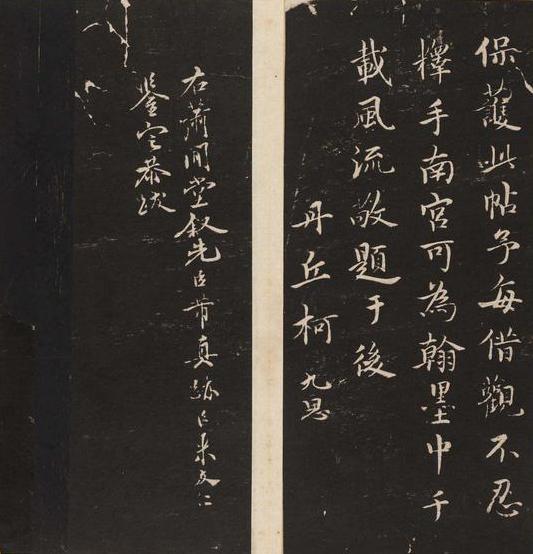 保護此帖予每借觀不忍
釋手南宮可為翰墨中千
載風流敬題于後
丹丘柯九思
右蕭閒堂叙先臣芾真跡臣米友仁
鑒定恭跋